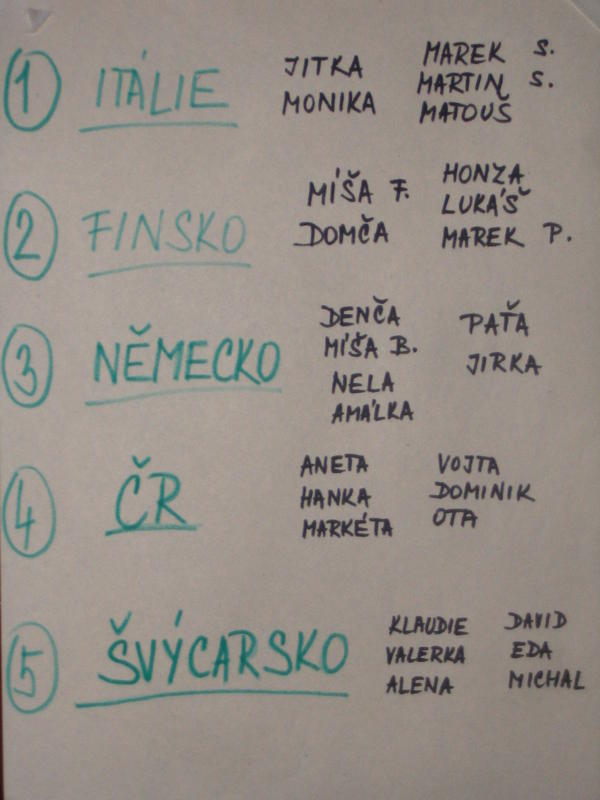 1 ITÁLIE
JITKA
MONIKA
MAREK S.
MARTIN S.
MATOUŠ
2 FINSKO
MÍŠA F.
DOMČA
HONZA
LUKÁŠ
MAREK P.
3 NĚMECKO
DENČA
MÍŠA B.
NELA
AMÁLKA
PAŤA
JIRKA
4 ČR
ANETA
HANKA
MARKÉTA
VOJTA
DOMINIK
OTA
5 ŠVÝCARSKO
KLAUDIE
VALERKA
ALENA
DAVID
EDA
MICHAL